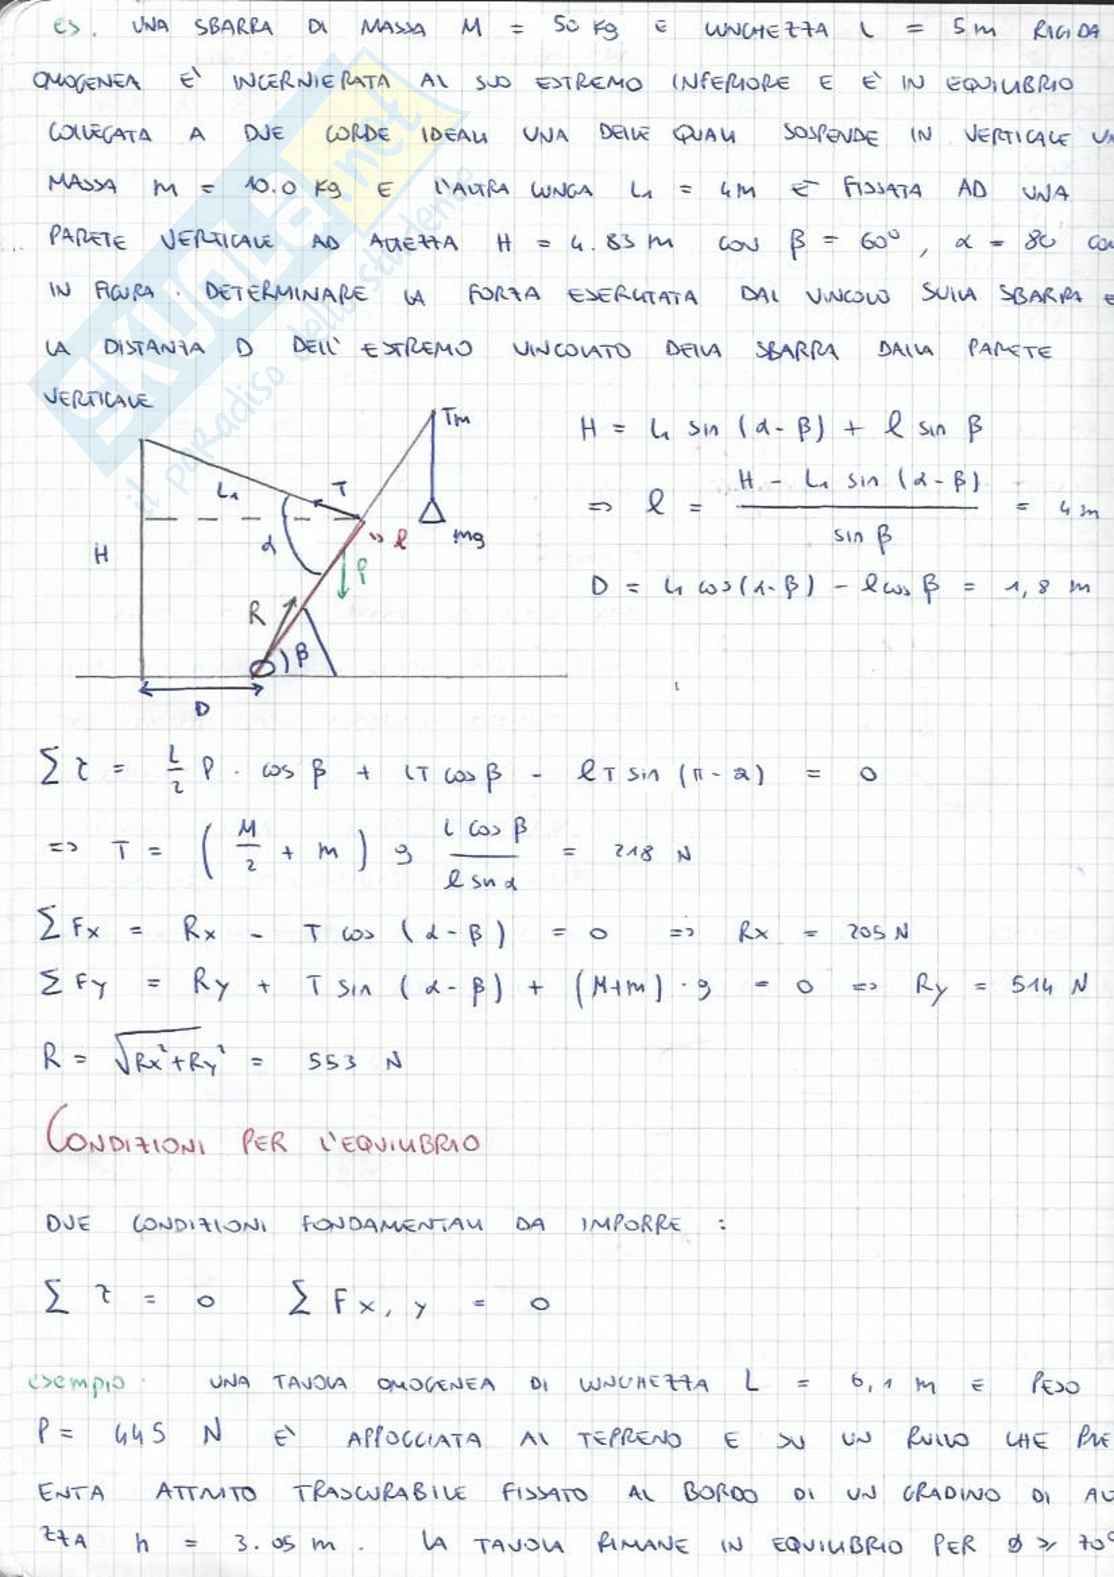 es. UNA SBARRA DI MASSA M = 50 Kg E LUNGHEZZA L = 5 m RIGIDA
OMOGENEA E' INCERNIERATA AL SUO ESTREMO INFERIORE E E' IN EQUILIBRIO
COLLEGATA A DUE CORDE IDEALI UNA DELLE QUALI SOSPENDE IN VERTICALE
MASSA m = 10.0 Kg E L'ALTRA LUNGA L1 = 4M E' FISSATA AD UNA
PARETE VERTICALE AD ALTEZZA H = 4.83 m CON β = 60°, α = 80
IN FIGURA. DETERMINARE LA FORZA ESERCITATA DAL VINCOLO SULLA SBARRA E
LA DISTANZA D DELL'ESTREMO VINCOLATO DELLA SBARRA DALLA PARETE
VERTICALE
SKUOLA.net
il paradiso dello studente
H = L1 sin (α-β) + l sin β
=> l = (H - L1 sin (α-β)) / sin β = 4 m
D = L1 cos(α-β) - l cos β = 1,8 m
Tm
L1
T
l
mg
H
α
P
R
β
D
Σ τ = L/2 P · cos β + LT cos β - l T sin (π - α) = 0
=> T = (M/2 + m) g (L cos β)/(l sin α) = 218 N
Σ Fx = Rx - T cos (α-β) = 0 => Rx = 205 N
Σ Fy = Ry + T sin (α-β) + (M+m) · g = 0 => Ry = 514 N
R = √(Rx² + Ry²) = 553 N
CONDIZIONI PER L'EQUILIBRIO
DUE CONDIZIONI FONDAMENTALI DA IMPORRE :
Σ τ = 0 Σ F x, y = 0
esempio. UNA TAVOLA OMOGENEA DI LUNGHEZZA L = 6,1 m E PESO
P = 445 N E' APPOGGIATA AL TERRENO E SU UN RULLO CHE PRE
ENTA ATTRITO TRASCURABILE FISSATO AL BORDO DI UN GRADINO DI AL
ZZA h = 3.05 m. LA TAVOLA RIMANE IN EQUILIBRIO PER ϕ ≥ 70°